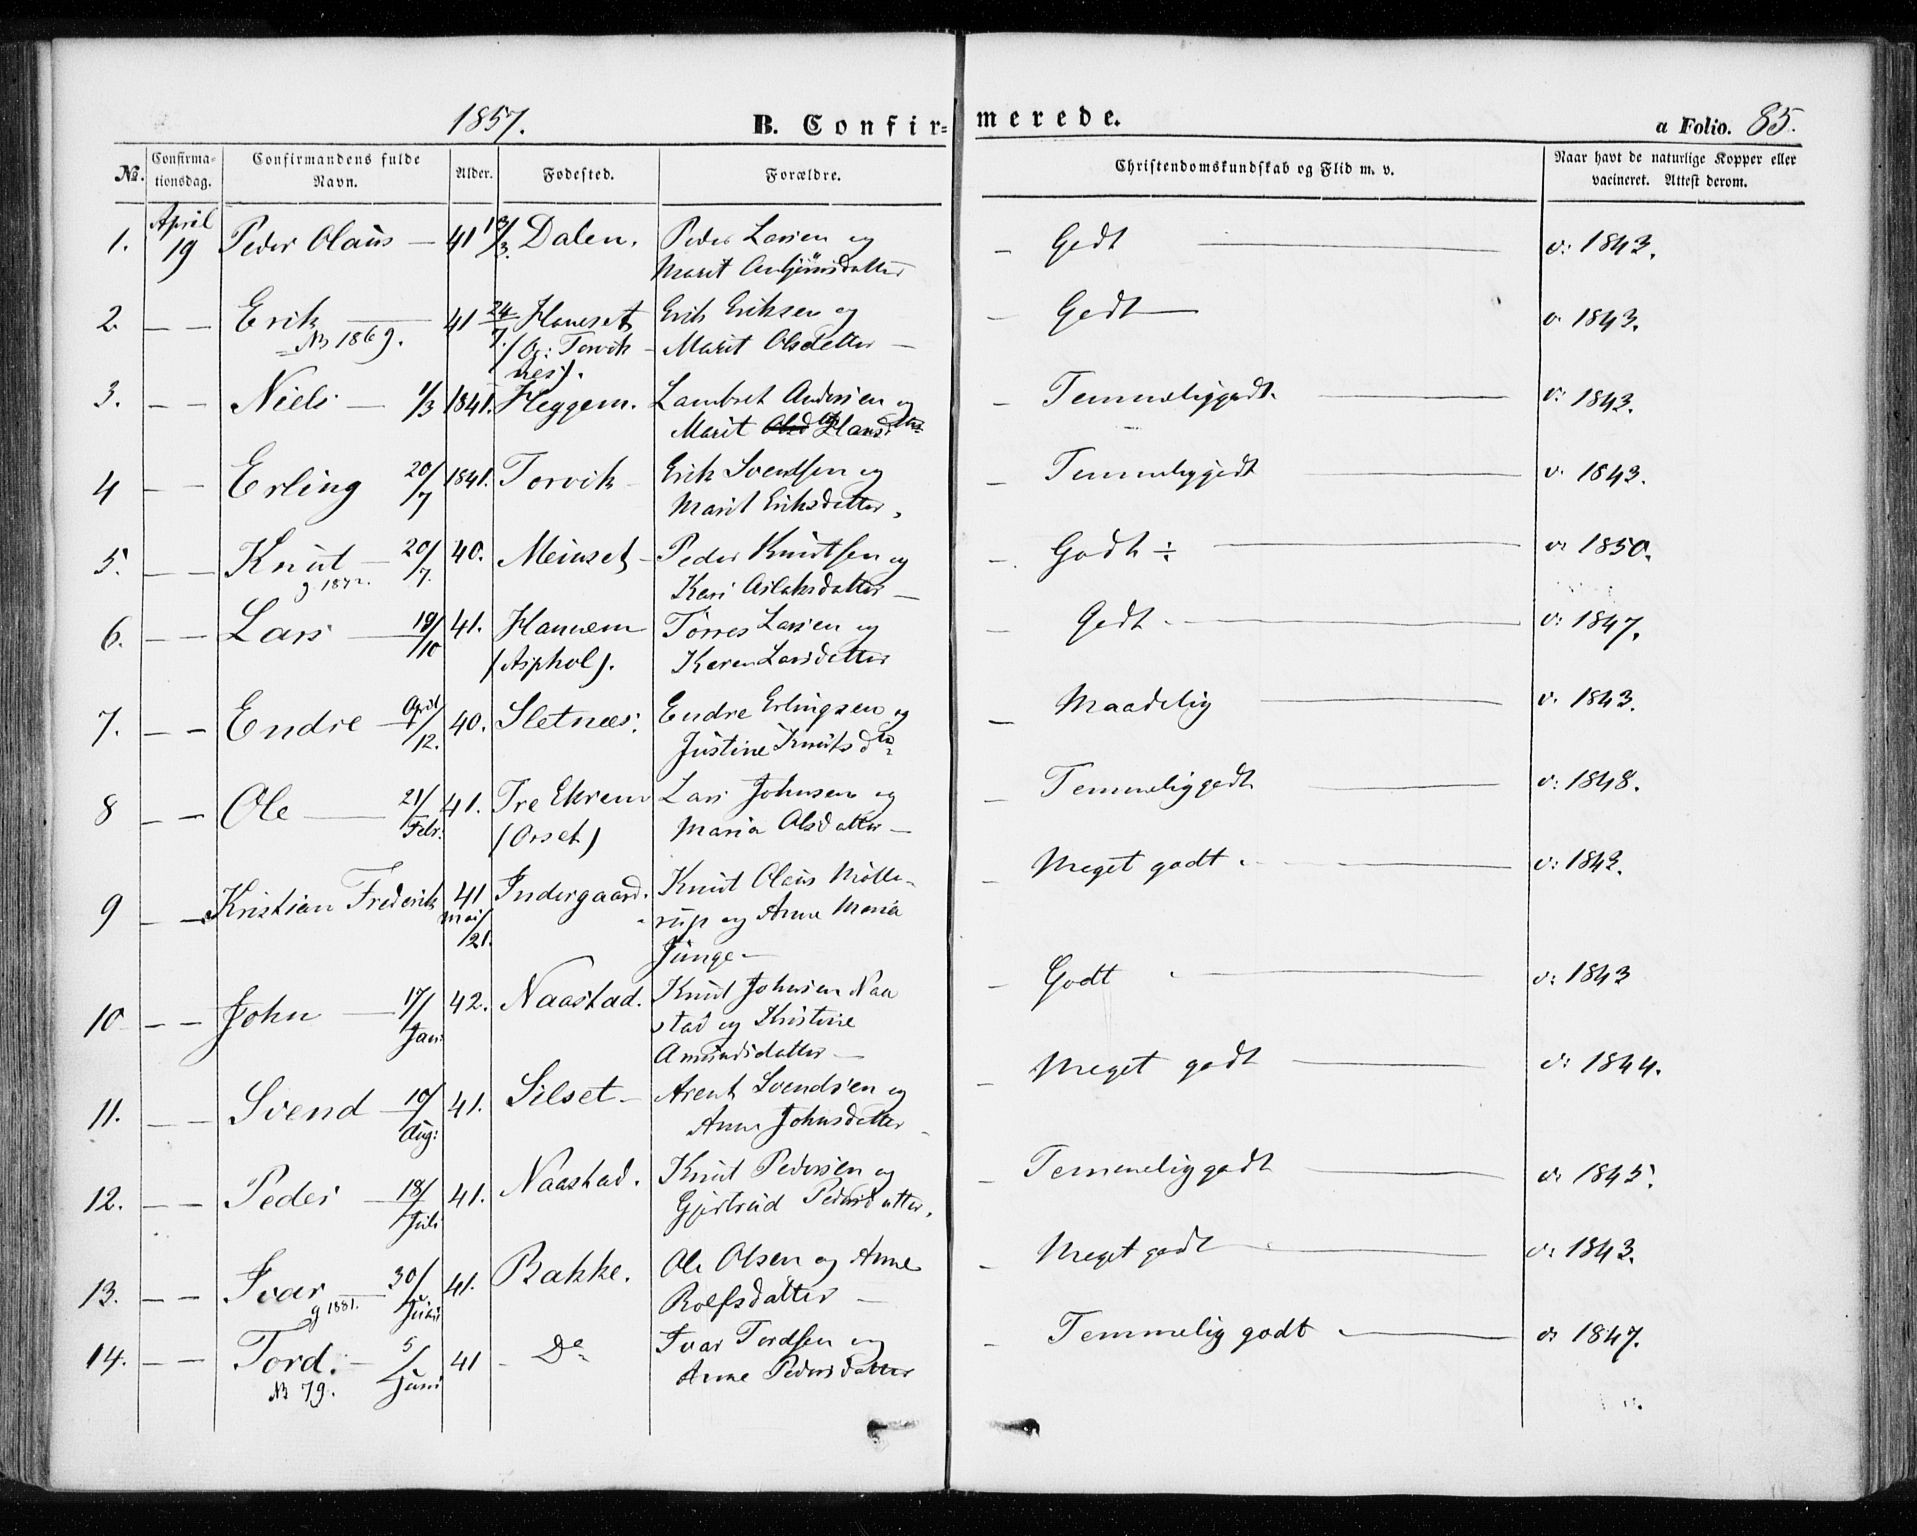 1857. B. Confirmerede. a Folio. 85.
No. Confirmationsdag. Confirmandens fulde Navn. Alder. Fødested. Forældre. Christendomskundskab og Flid m. v. Naar havt de naturlige Kopper eller vacineret. Attest derom.
1. April 19 Peder Olaus — 41 /3. Dalen. Peder Larsen og — Godt — v: 1843.
Marit
2. — — Erik — 41 24/7. Haneset Erik Eriksen og — Godt — v. 1843.
NB 1869. (Op: Torvik — Marit Olsdatter —
nes).
3. — — Niels — 1/3 1841. Heggem. Lambret Andersen og — Temmeliggodt. — v: 1843.
Marit Hansdtr
4 — — Erling 20/7 1841. Torvik — Erik Svendsen og — Temmeliggodt — v. 1843.
Marit Eriksdatter.
5. — — Knut — 20/7. 40. Meinset — Peder Knutsen og — Godt ÷ — v. 1850.
g 1872. Kari Aslaksdatter —
6. — — Lars — 19/10 41. Hannem Torres Larsen og — Godt — v: 1847.
(Asphol). Karen Larsdatter
7. — — Endre — April/12. 40. Sletnæs. Endre Erlingsen og — Maadelig — v. 1843.
Justine Knutsdtr
8 — — Ole — 21/Febr. 41. Tre Ekrem Lars Johnsen og — Temmeliggodt — v: 1848.
(Orset) Maria Olsdatter —
9 — — Kristian Frederik 41 Mai/21. Indergaard. Knut Olaus Mölle- — Meget godt — v: 1843.
rup og Anne Maria
Junge —
10 — — John — 17/Jan: 42. Naastad. Knut Johnsen Naa — Godt — v: 1843
stad og Kristine
Amundsdatter —
11. — — Svend — 10/Aug: 41. Silset — Arent Svendsen og — Meget godt — v: 1844.
Anne Johnsdatter —
12. — — Peder — 18/Juli 41. Naastad. Knut Pedersen og — Temmeliggodt — v. 1845.
Gjertrud Pedersdatter.
13. — — Ivar — 30/Juni 41. Bakke. Ole Olsen og Anne — Meget godt — v: 1843.
g 1881. Rolfsdatter —
14. — — Tord. — 5/Juni 41 — Do Ivar Tordsen og — Temmelig godt — v. 1847.
NB 79. Anne Pedersdatter